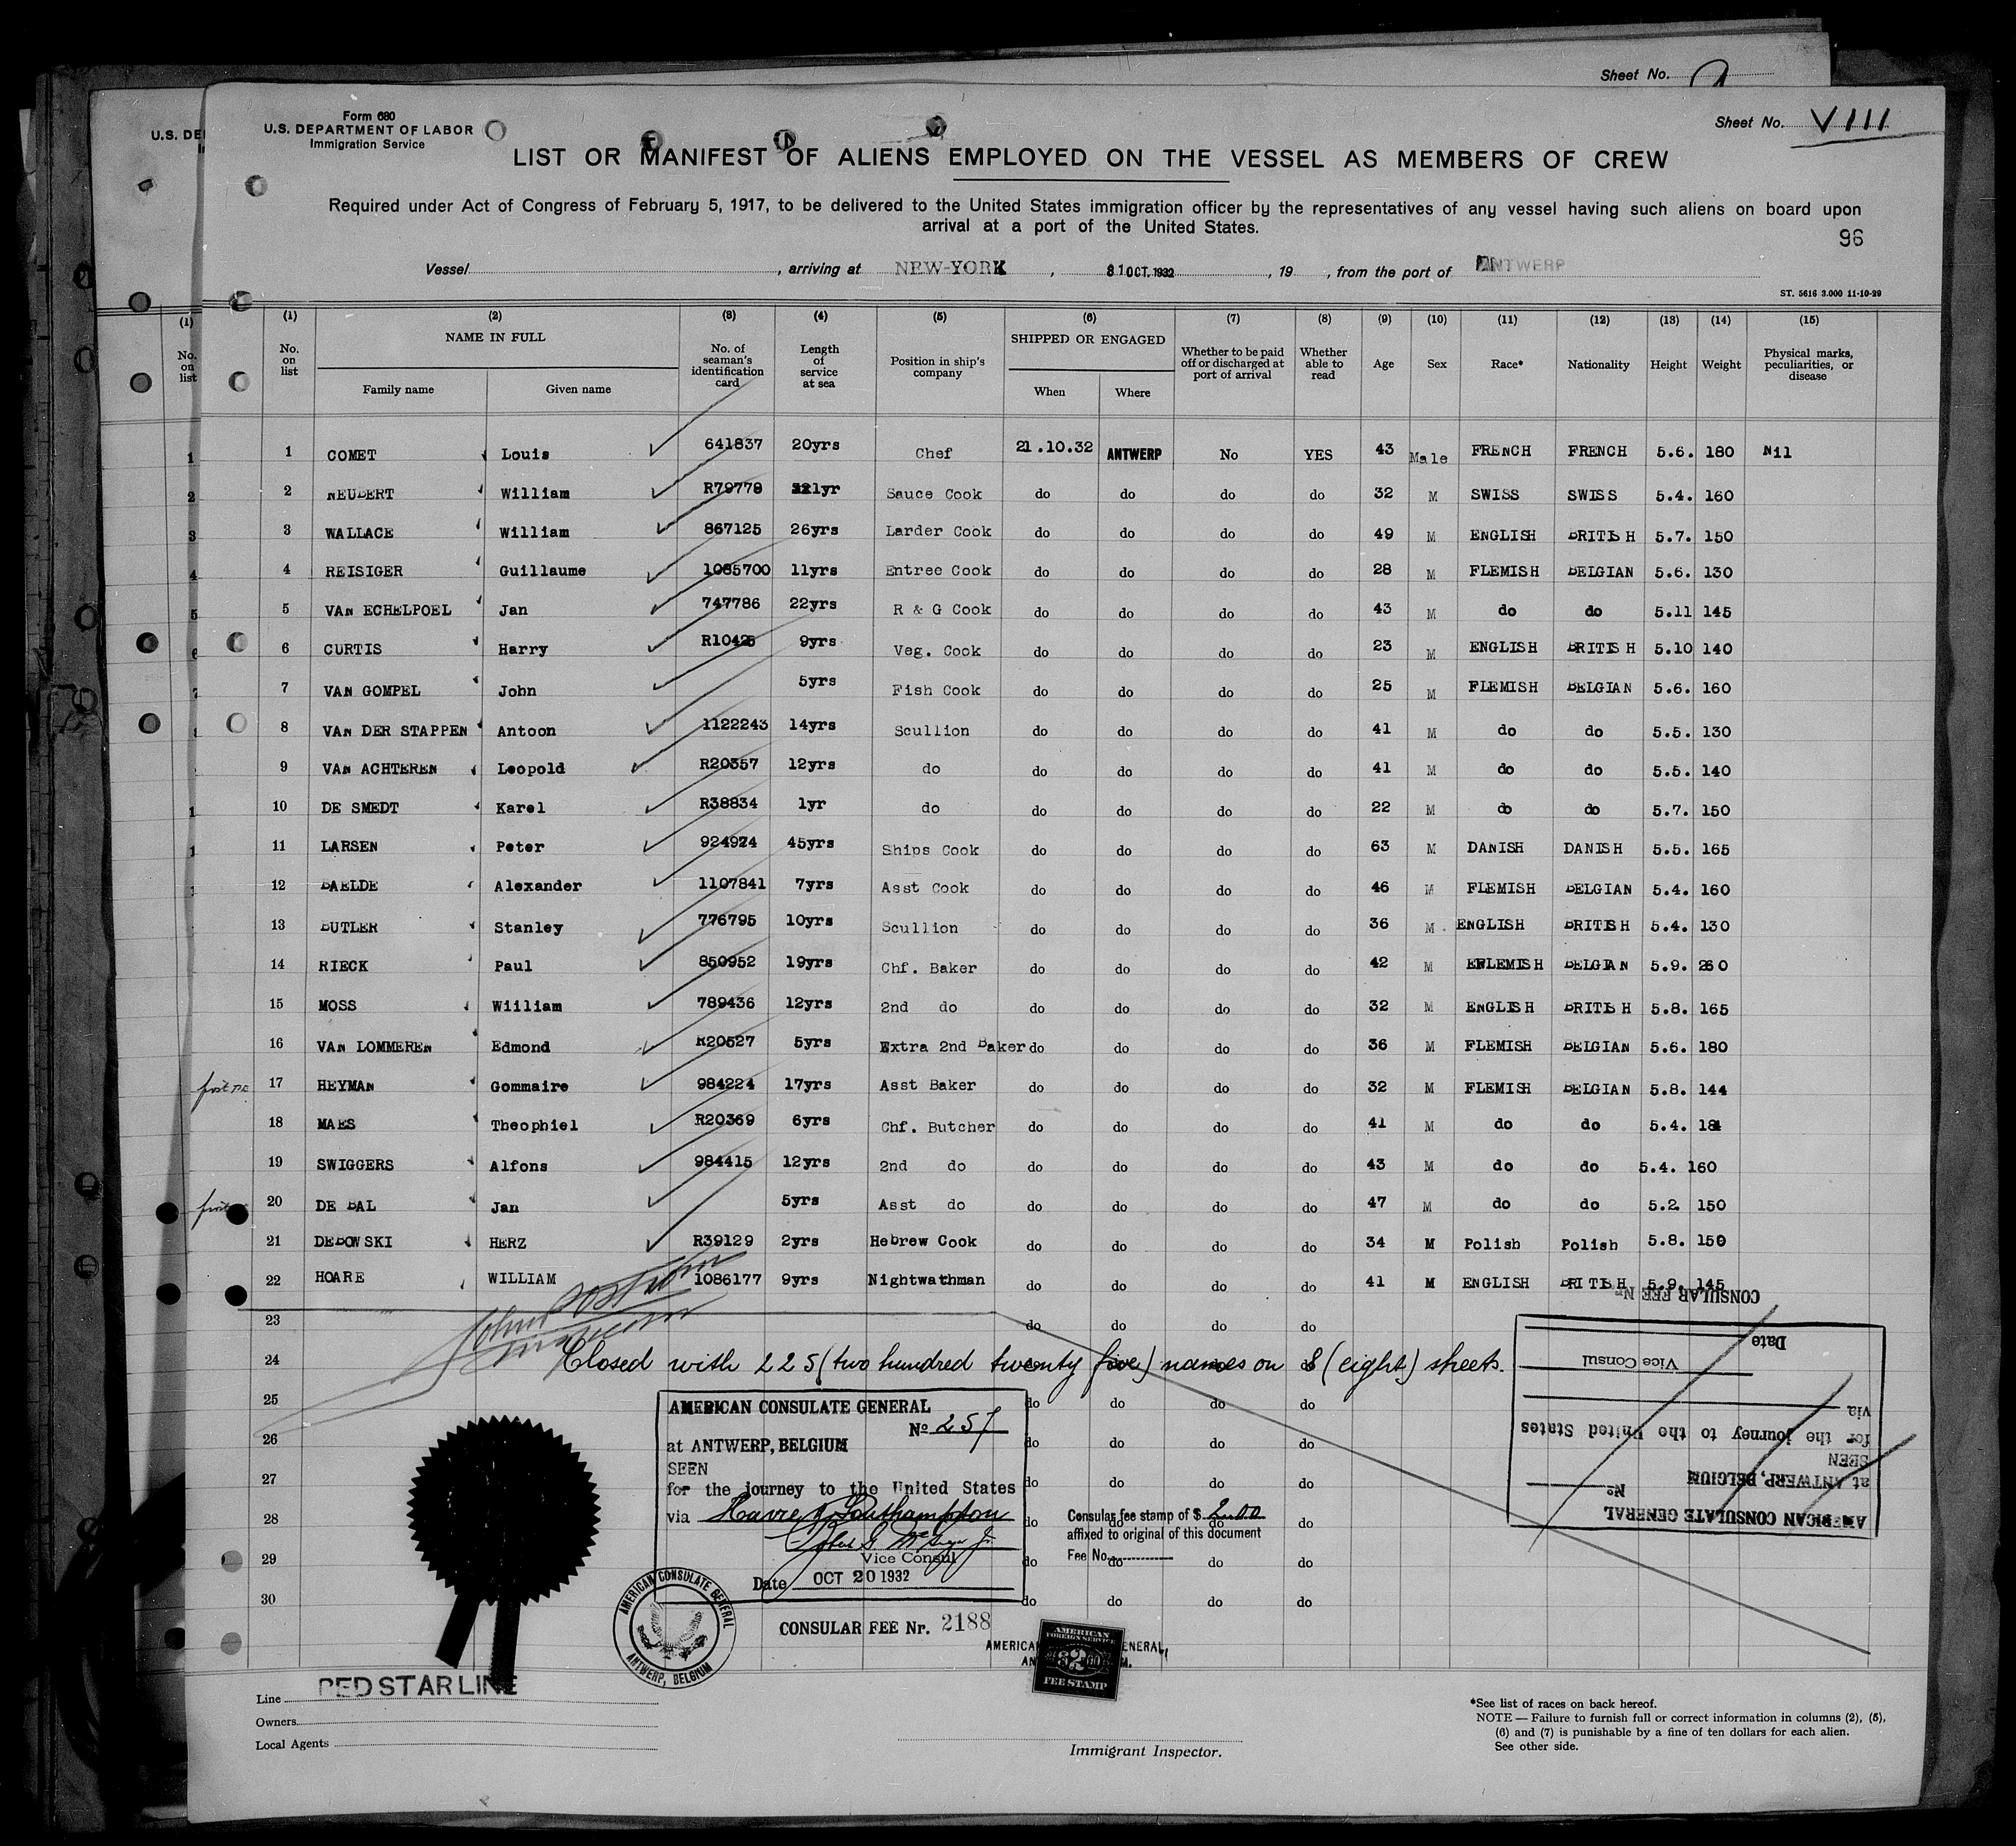 Sheet No.
Form 680
U.S. DEPARTMENT OF LABOR
Immigration Service
Sheet No. VIII
LIST OR MANIFEST OF ALIENS EMPLOYED ON THE VESSEL AS MEMBERS OF CREW
Required under Act of Congress of February 5, 1917, to be delivered to the United States immigration officer by the representatives of any vessel having such aliens on board upon
arrival at a port of the United States.
96
Vessel , arriving at NEW-YORK , 31 OCT. 1932 , 19 , from the port of ANTWERP
ST. 5616 3.000 11-10-29
(1) (2) (3) (4) (5) (6) (7) (8) (9) (10) (11) (12) (13) (14) (15)
No. on list NAME IN FULL Family name Given name No. of seaman's identification card Length of service at sea Position in ship's company SHIPPED OR ENGAGED When Where Whether to be paid off or discharged at port of arrival Whether able to read Age Sex Race* Nationality Height Weight Physical marks, peculiarities, or disease
1 COMET Louis 641837 20yrs Chef 21.10.32 ANTWERP No YES 43 Male FRENCH FRENCH 5.6. 180 Nil
2 NEUBERT William R79778 1yr Sauce Cook do do do do 32 M SWISS SWISS 5.4. 160
3 WALLACE William 867125 26yrs Larder Cook do do do do 49 M ENGLISH BRITISH 5.7. 150
4 REISIGER Guillaume 1085700 11yrs Entree Cook do do do do 28 M FLEMISH BELGIAN 5.6. 130
5 VAN ECHELPOEL Jan 747786 22yrs R & G Cook do do do do 43 M do do 5.11 145
6 CURTIS Harry R10425 9yrs Veg. Cook do do do do 23 M ENGLISH BRITISH 5.10 140
7 VAN GOMPEL John 5yrs Fish Cook do do do do 25 M FLEMISH BELGIAN 5.6. 160
8 VAN DER STAPPEN Antoon 1122243 14yrs Scullion do do do do 41 M do do 5.5. 130
9 VAN ACHTEREN Leopold R20357 12yrs do do do do do 41 M do do 5.5. 140
10 DE SMEDT Karel R38834 1yr do do do do do 22 M do do 5.7. 150
11 LARSEN Peter 924924 45yrs Ships Cook do do do do 63 M DANISH DANISH 5.5. 165
12 BAELDE Alexander 1107841 7yrs Asst Cook do do do do 46 M FLEMISH BELGIAN 5.4. 160
13 BUTLER Stanley 776795 10yrs Scullion do do do do 36 M. ENGLISH BRITISH 5.4. 130
14 RIECK Paul 850952 19yrs Chf. Baker do do do do 42 M FLEMISH BELGIAN 5.9. 260
15 MOSS Wiiliam 789436 12yrs 2nd do do do do do 32 M ENGLISH BRITISH 5.8. 165
16 VAN LOMMEREN Edmond R20527 5yrs Extra 2nd Baker do do do do 36 M FLEMISH BELGIAN 5.6. 180
17 HEYMAN Gommaire 984224 17yrs Asst Baker do do do do 32 M FLEMISH BELGIAN 5.8. 144
18 MAES Theophiel R20369 6yrs Chf. Butcher do do do do 41 M do do 5.4. 184
19 SWIGGERS Alfons 984415 12yrs 2nd do do do do do 43 M do do 5.4. 160
20 DE BAL Jan 5yrs Asst do do do do do 47 M do do 5.2. 150
21 DEBOWSKI HERZ R39129 2yrs Hebrew Cook do do do do 34 M Polish Polish 5.8. 150
22 HOARE WILLIAM 1086177 9yrs Nightwathman do do do do 41 M ENGLISH BRITISH 5.9. 145
23 do do do do
24 Closed with 225 (two hundred twenty five) names on 8 (eight) sheets.
25 do do do do
26 do do do do
27 do do do do
28 do do do
29 do do do do
30 do do do do
AMERICAN CONSULATE GENERAL
No 257
at ANTWERP, BELGIUM
SEEN
for the journey to the United States
via Havre & Southampton
Vice Consul
Date OCT 20 1932
AMERICAN CONSULATE GENERAL
ANTWERP, BELGIUM
CONSULAR FEE Nr. 2188
Consular fee stamp of $ 2.00
affixed to original of this document
Fee No.
AMERICAN FOREIGN SERVICE
FEE STAMP
CONSULAR FEE Nr.
AMERICAN CONSULATE GENERAL
No
at ANTWERP, BELGIUM
SEEN
for the journey to the United States
via
Vice Consul
Date
Line RED STAR LINE
Owners
Local Agents
Immigrant Inspector.
*See list of races on back hereof.
NOTE — Failure to furnish full or correct information in columns (2), (5),
(6) and (7) is punishable by a fine of ten dollars for each alien.
See other side.